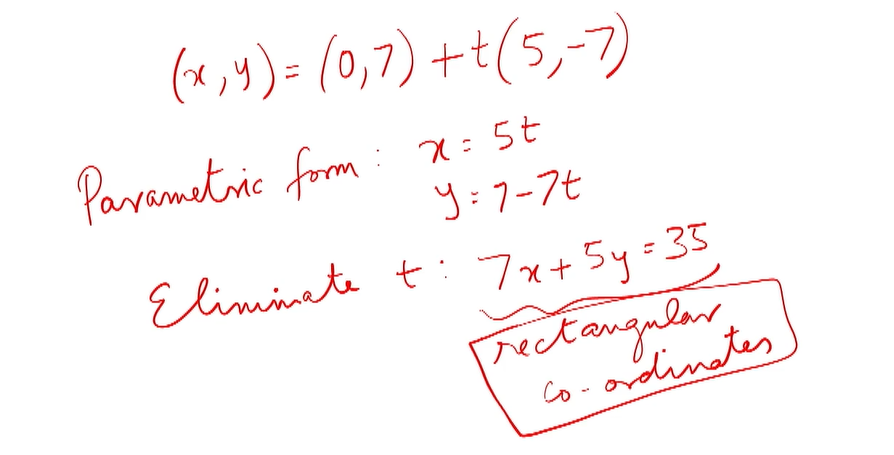 (x, y) = (0, 7) + t(5, -7)
Parametric form : x = 5t
y = 7 - 7t
Eliminate t : 7x + 5y = 35
rectangular
co-ordinates